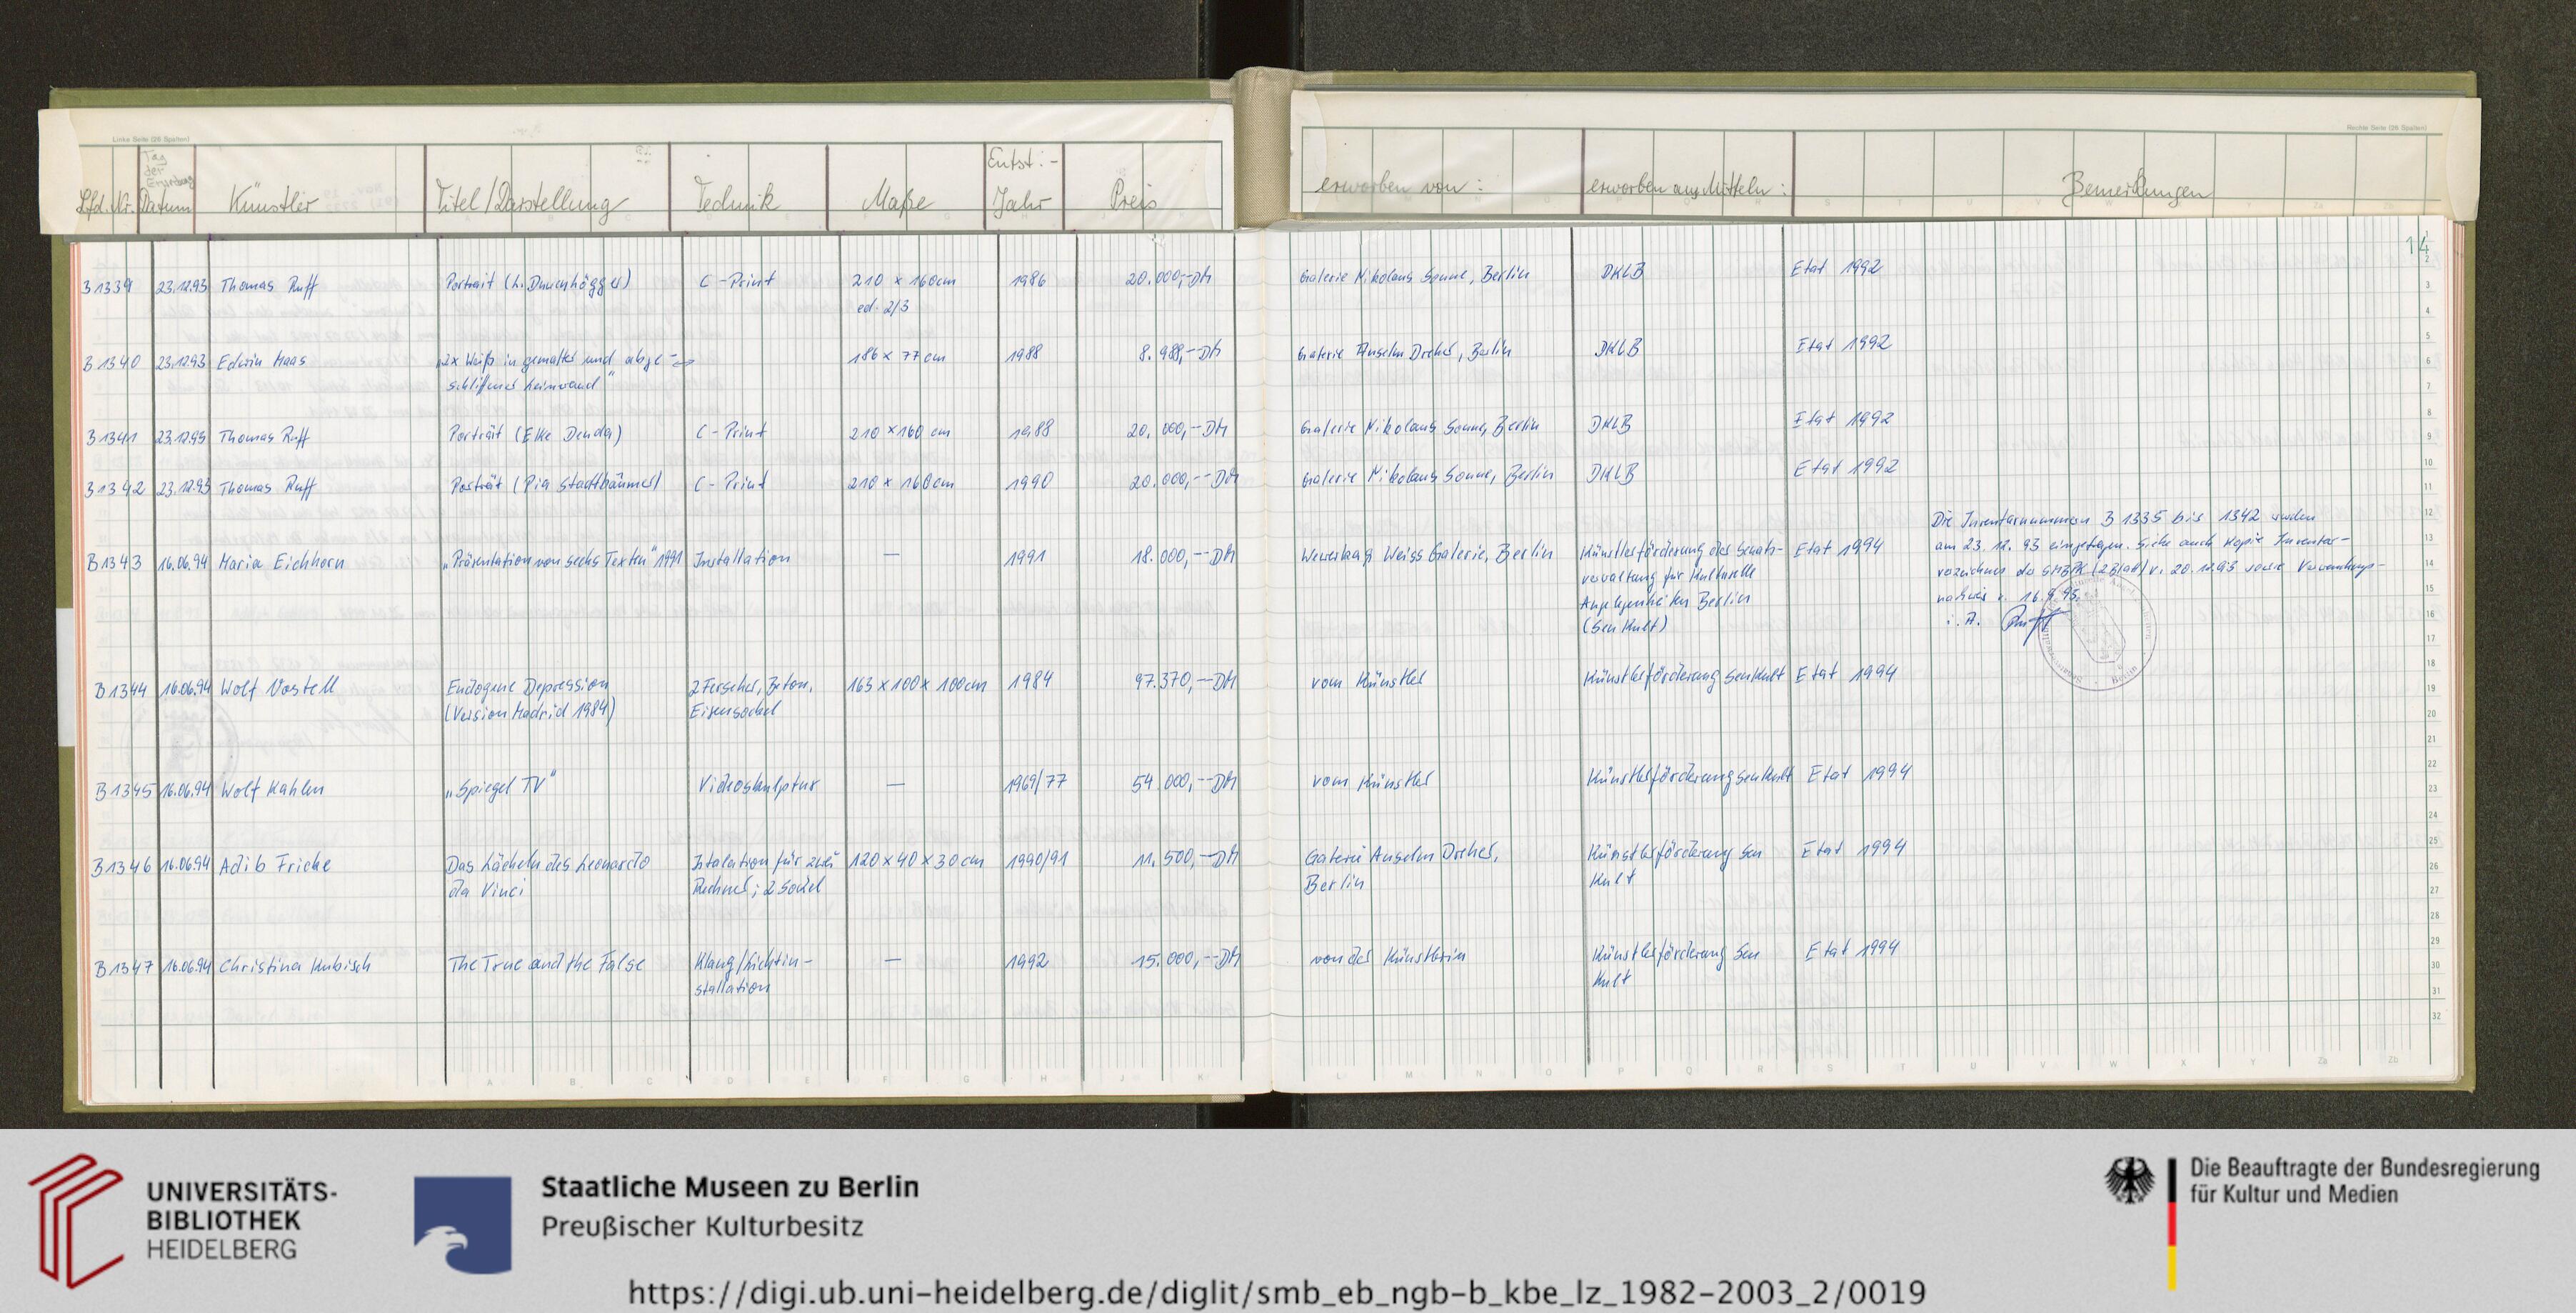 Linke Seite (26 Spalten)
Rechte Seite (26 Spalten)
Lfd. Nr. Tag der Erwerbung Datum Künstler Titel/Darstellung Technik Maße Entst:- Jahr Preis erworben von: erworben aus Mitteln: Bemerkungen
14
B 1339 23.12.93 Thomas Ruff Portrait (L. C-Print 210 x 160 cm 1986 20.000,-- DM Galerie Nikolaus Sonne, Berlin DKLB Etat 1992
ed. 2/3
B 1340 23.12.93 Edwin Haas „2x Weiß in gemalter und abge- 186 x 77 cm 1988 8.988,-- DM Galerie Anselm Dreher, Berlin DKLB Etat 1992
schliffener Leinwand"
B 1341 23.12.93 Thomas Ruff Porträt (Elke Denda) C-Print 210 x 160 cm 1988 20.000,-- DM Galerie Nikolaus Sonne, Berlin DKLB Etat 1992
B 1342 23.12.93 Thomas Ruff Porträt (Pia Stadtbäumer) C-Print 210 x 160 cm 1990 20.000,-- DM Galerie Nikolaus Sonne, Berlin DKLB Etat 1992
Die Inventarnummern B 1335 bis 1342 wurden
am 23.12.93 eingetragen. Siehe auch Kopie Inventar-
verzeichnis der SMBPK (2 Blatt) v. 20.12.93 sowie Verwendungs-
nachweis v. 16.8.95.
i. A.
B 1343 16.06.94 Maria Eichhorn „Präsentation von sechs Texten" 1991 Installation — 1991 18.000,-- DM Wewerka & Weiss Galerie, Berlin Künstlerförderung der Senats- Etat 1994
verwaltung für Kulturelle
Angelegenheiten Berlin
(Sen Kult)
B 1344 16.06.94 Wolf Vostell Endogene Depression 2 Fernseher, Beton, 163 x 100 x 100 cm 1984 97.370,-- DM vom Künstler Künstlerförderung SenKult Etat 1994
(Version Madrid 1984) Eisensockel
B 1345 16.06.94 Wolf Kahlen „Spiegel TV" Videoskulptur — 1969/77 54.000,-- DM vom Künstler Künstlerförderung SenKult Etat 1994
B 1346 16.06.94 Adib Fricke Das Lächeln des Leonardo Istalation für zwei 120 x 40 x 30 cm 1990/91 11.500,-- DM Galerie Anselm Dreher, Künstlerförderung Sen Etat 1994
da Vinci Rechner; 2 Sockel Berlin Kult
B 1347 16.06.94 Christina Kubisch The True and the False Klang/Lichtin- — 1992 15.000,-- DM von der Künstlerin Künstlerförderung Sen Etat 1994
stallation Kult
UNIVERSITÄTS-
BIBLIOTHEK
HEIDELBERG
Staatliche Museen zu Berlin
Preußischer Kulturbesitz
Die Beauftragte der Bundesregierung
für Kultur und Medien
https://digi.ub.uni-heidelberg.de/diglit/smb_eb_ngb-b_kbe_lz_1982-2003_2/0019